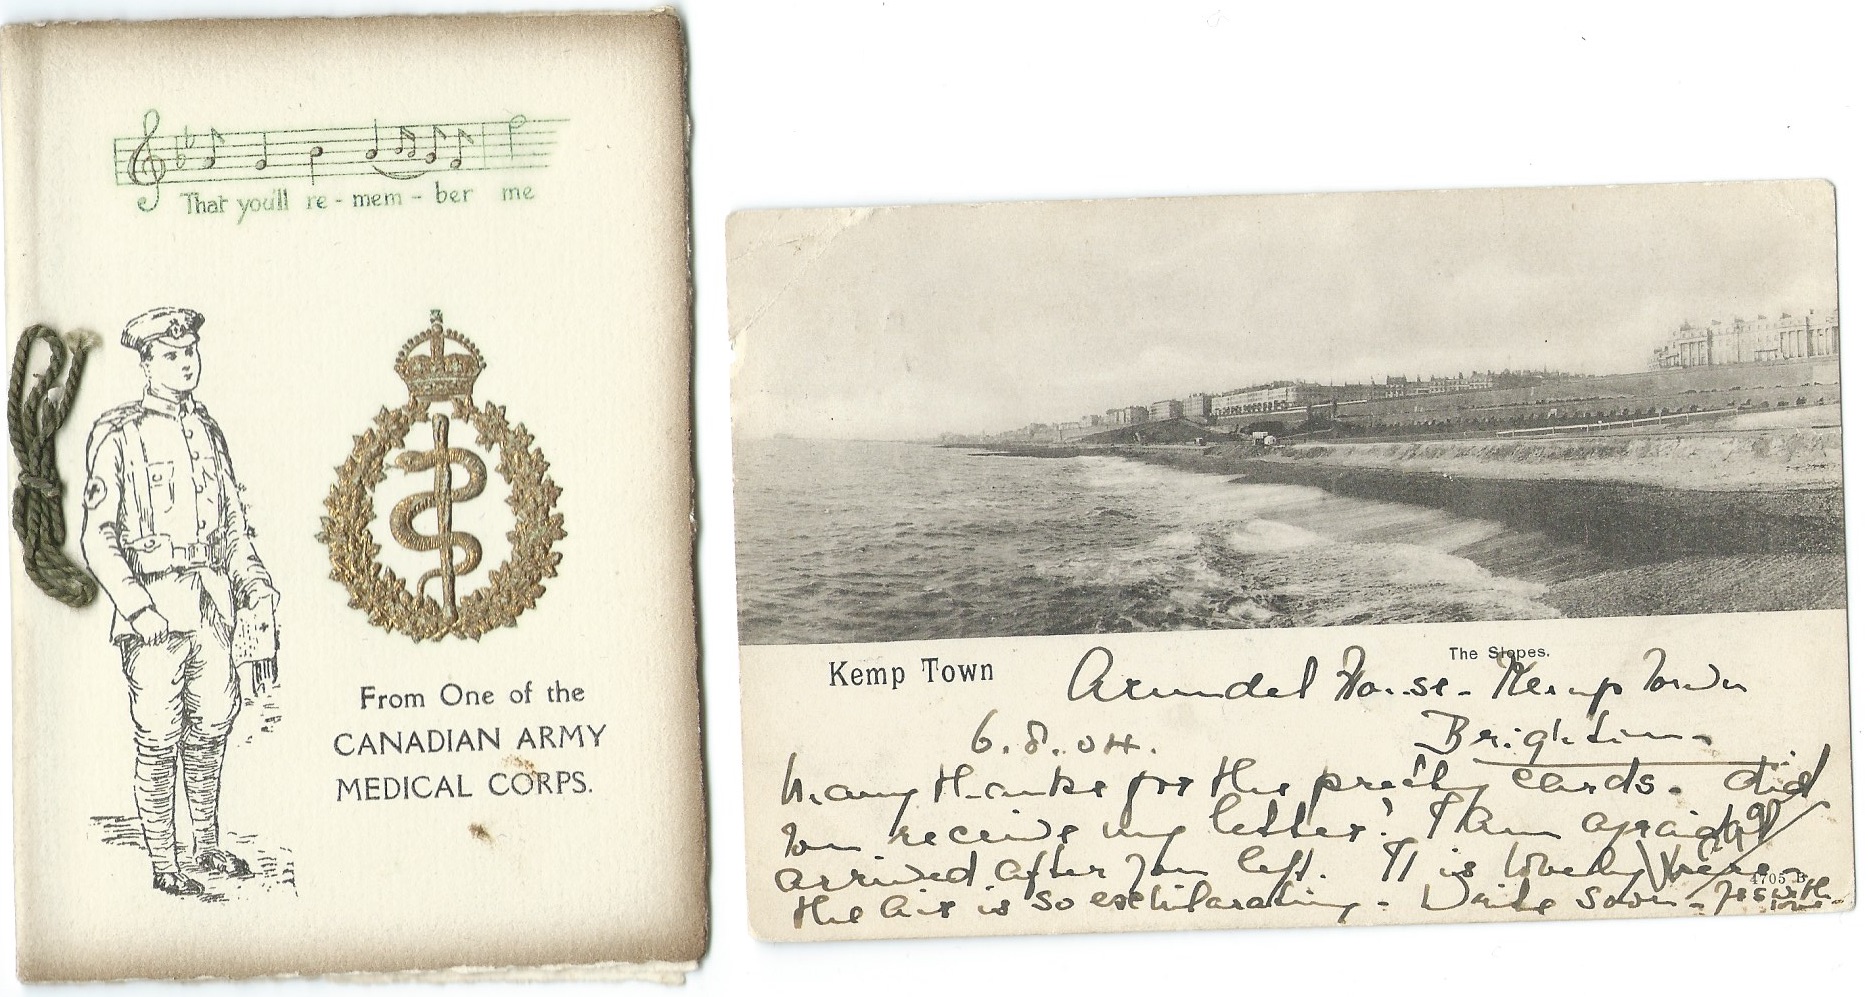 That you'll re - mem - ber me
From One of the
CANADIAN ARMY
MEDICAL CORPS.
Kemp Town
The Slopes.
Arundel House - Kemp Town
6.8.04.
Brighton
Many thanks for the pretty cards. Did
you receive my letter? I am afraid it
arrived after you left. It is lovely here
4705 B
the air is so exhilarating - Write soon -